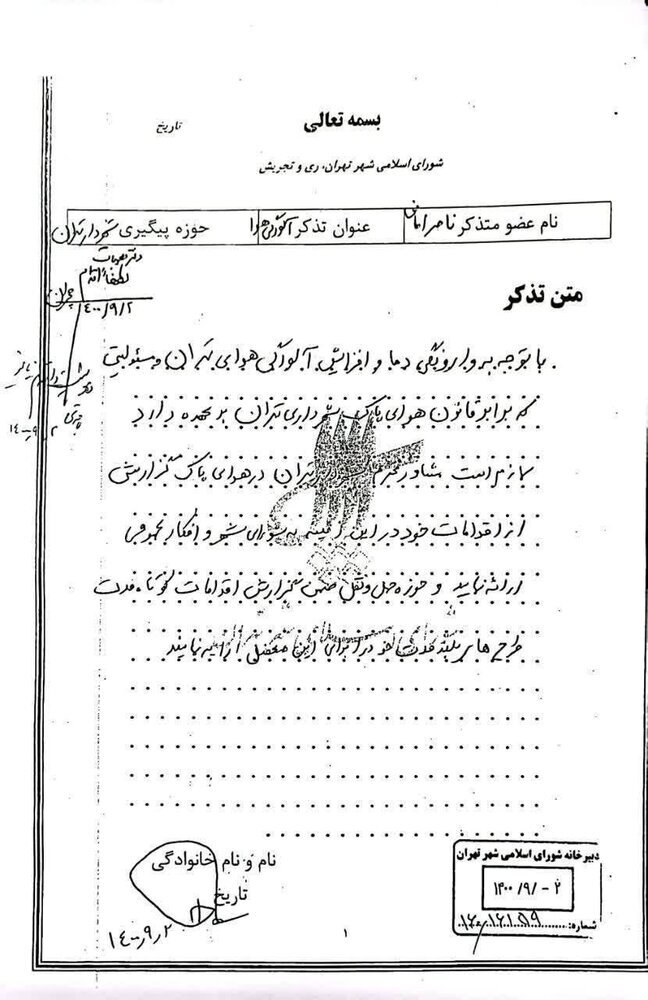 بسمه تعالی
تاریخ
شورای اسلامی شهر تهران، ری و تجریش
نام عضو متذکر ناصر امانی
عنوان تذکر آلودگی هوا
حوزه پیگیری شهرداری تهران
لطفاً اقدام
۱۴۰۰/۹/۲
متن تذکر
با توجه به وارونگی دما و افزایش آلودگی هوای تهران و مسئولیتی
که برابر قانون هوای پاک شهرداری تهران بر عهده دارد
لازم است مشاور محترم شهردار تهران در هوای پاک گزارش
از اقدامات خود در این زمینه به شورای شهر و افکار عمومی
ارائه نمایید و حوزه حمل و نقل ضمن گزارش اقدامات کوتاه مدت
طرح های بلند مدت خود را برای این معضل ارایه نمایند
نام و نام خانوادگی
تاریخ
۱۴۰۰/۹/۲
۱
دبیرخانه شورای اسلامی شهر تهران
۱۴۰۰/۹/-۲
شماره: ۱۶۰/۱۶۱۵۹